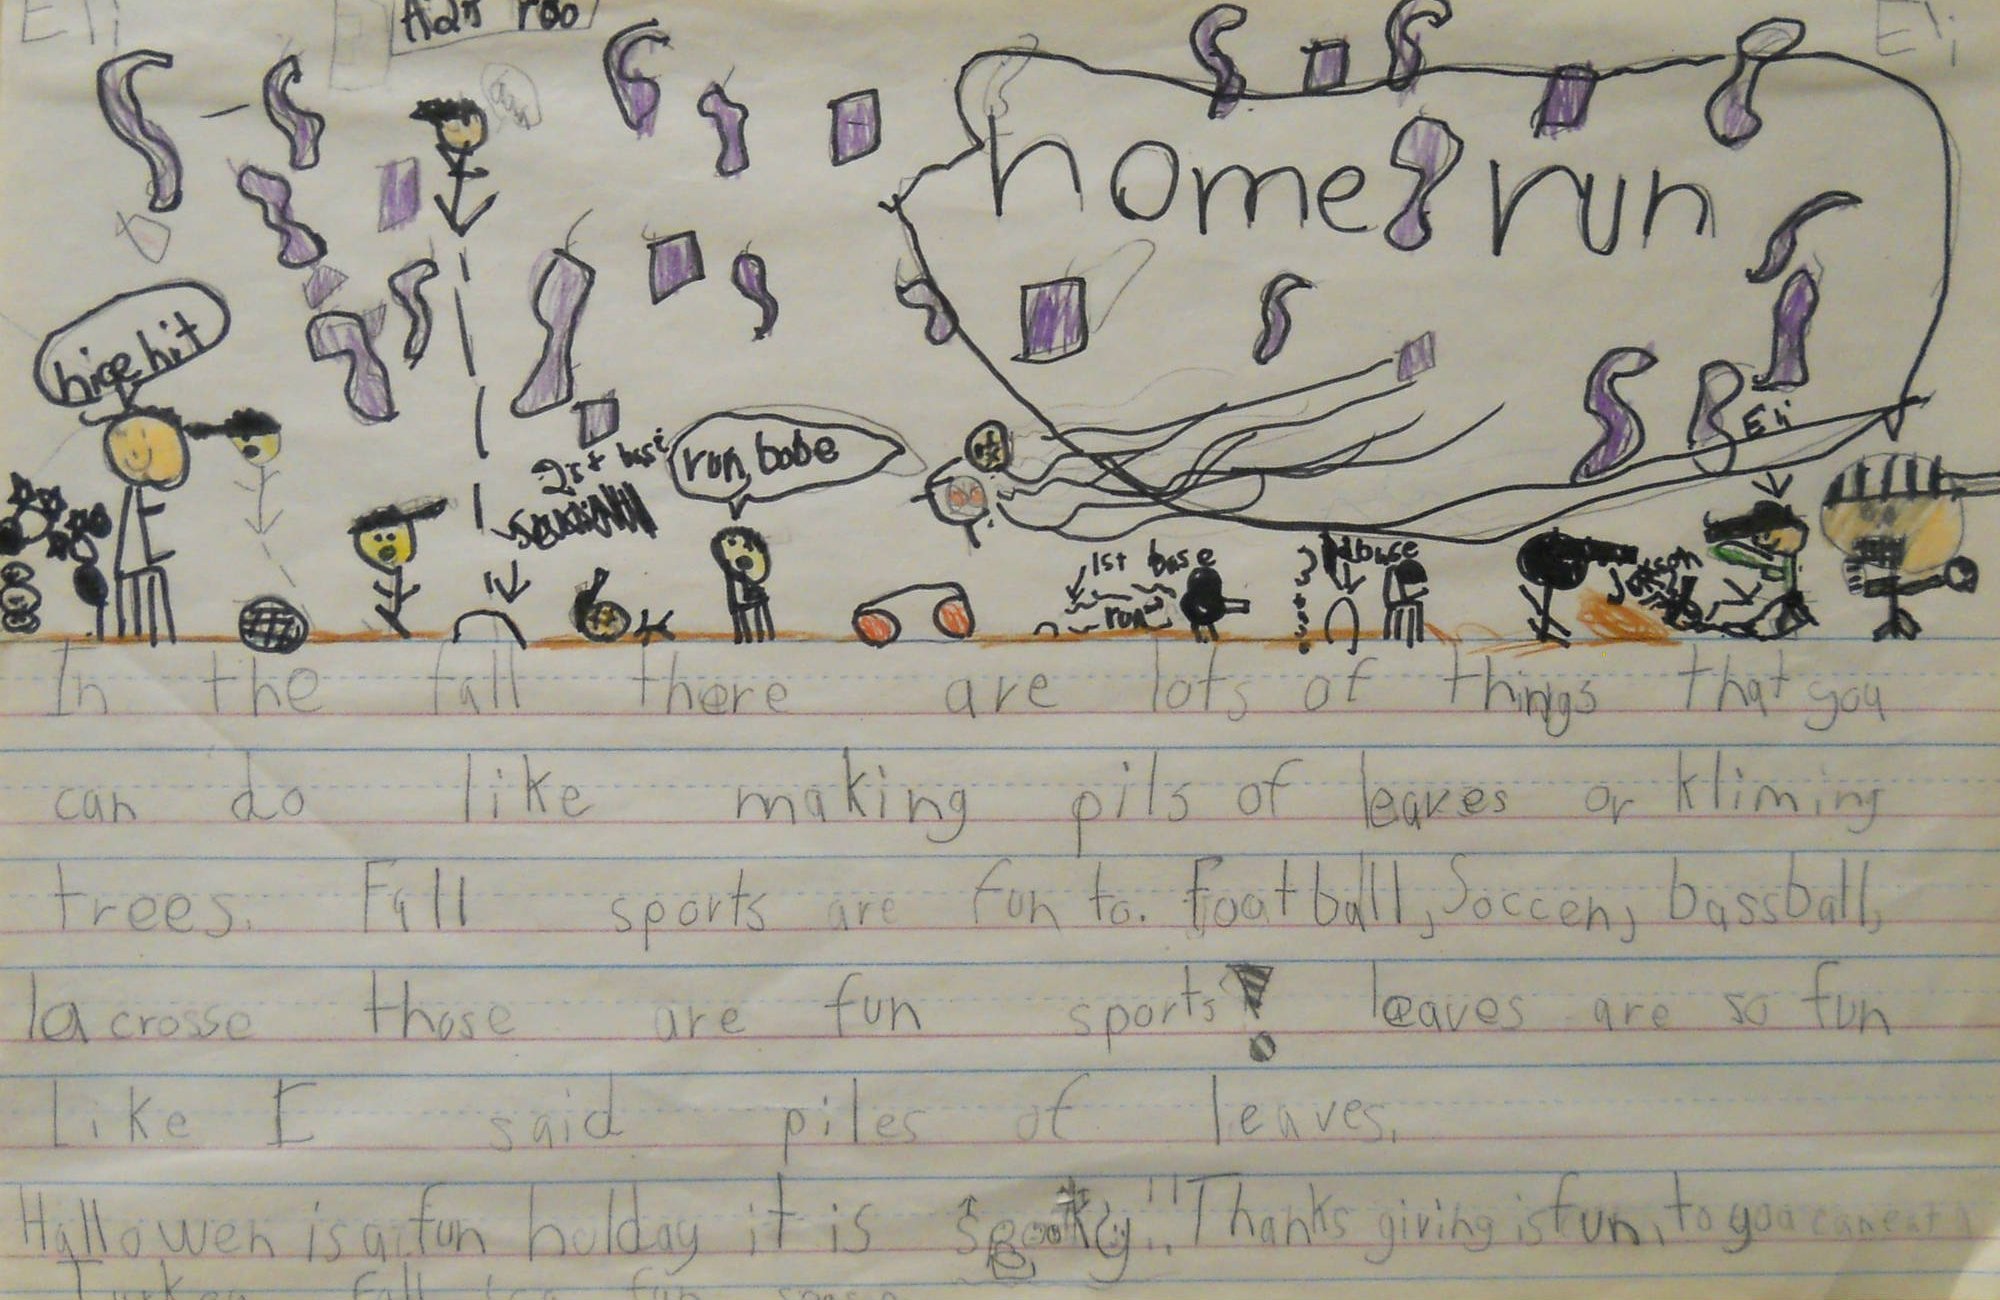 Eli
Eli
home run
nice hit
run babe
2st base
1st base
run
base
Eli
Jakson
In the fall there are lots of things that you
can do like making pils of leaves or kliming
trees. Fall sports are fun to. Foatball, Soccen, bassball,
lacrosse those are fun sports! leaves are so fun
Like I said piles of leaves.
Hallowen is a fun holday it is spooky!! Thanks giving is fun, to you can eat a
Turkey fall is a fun season